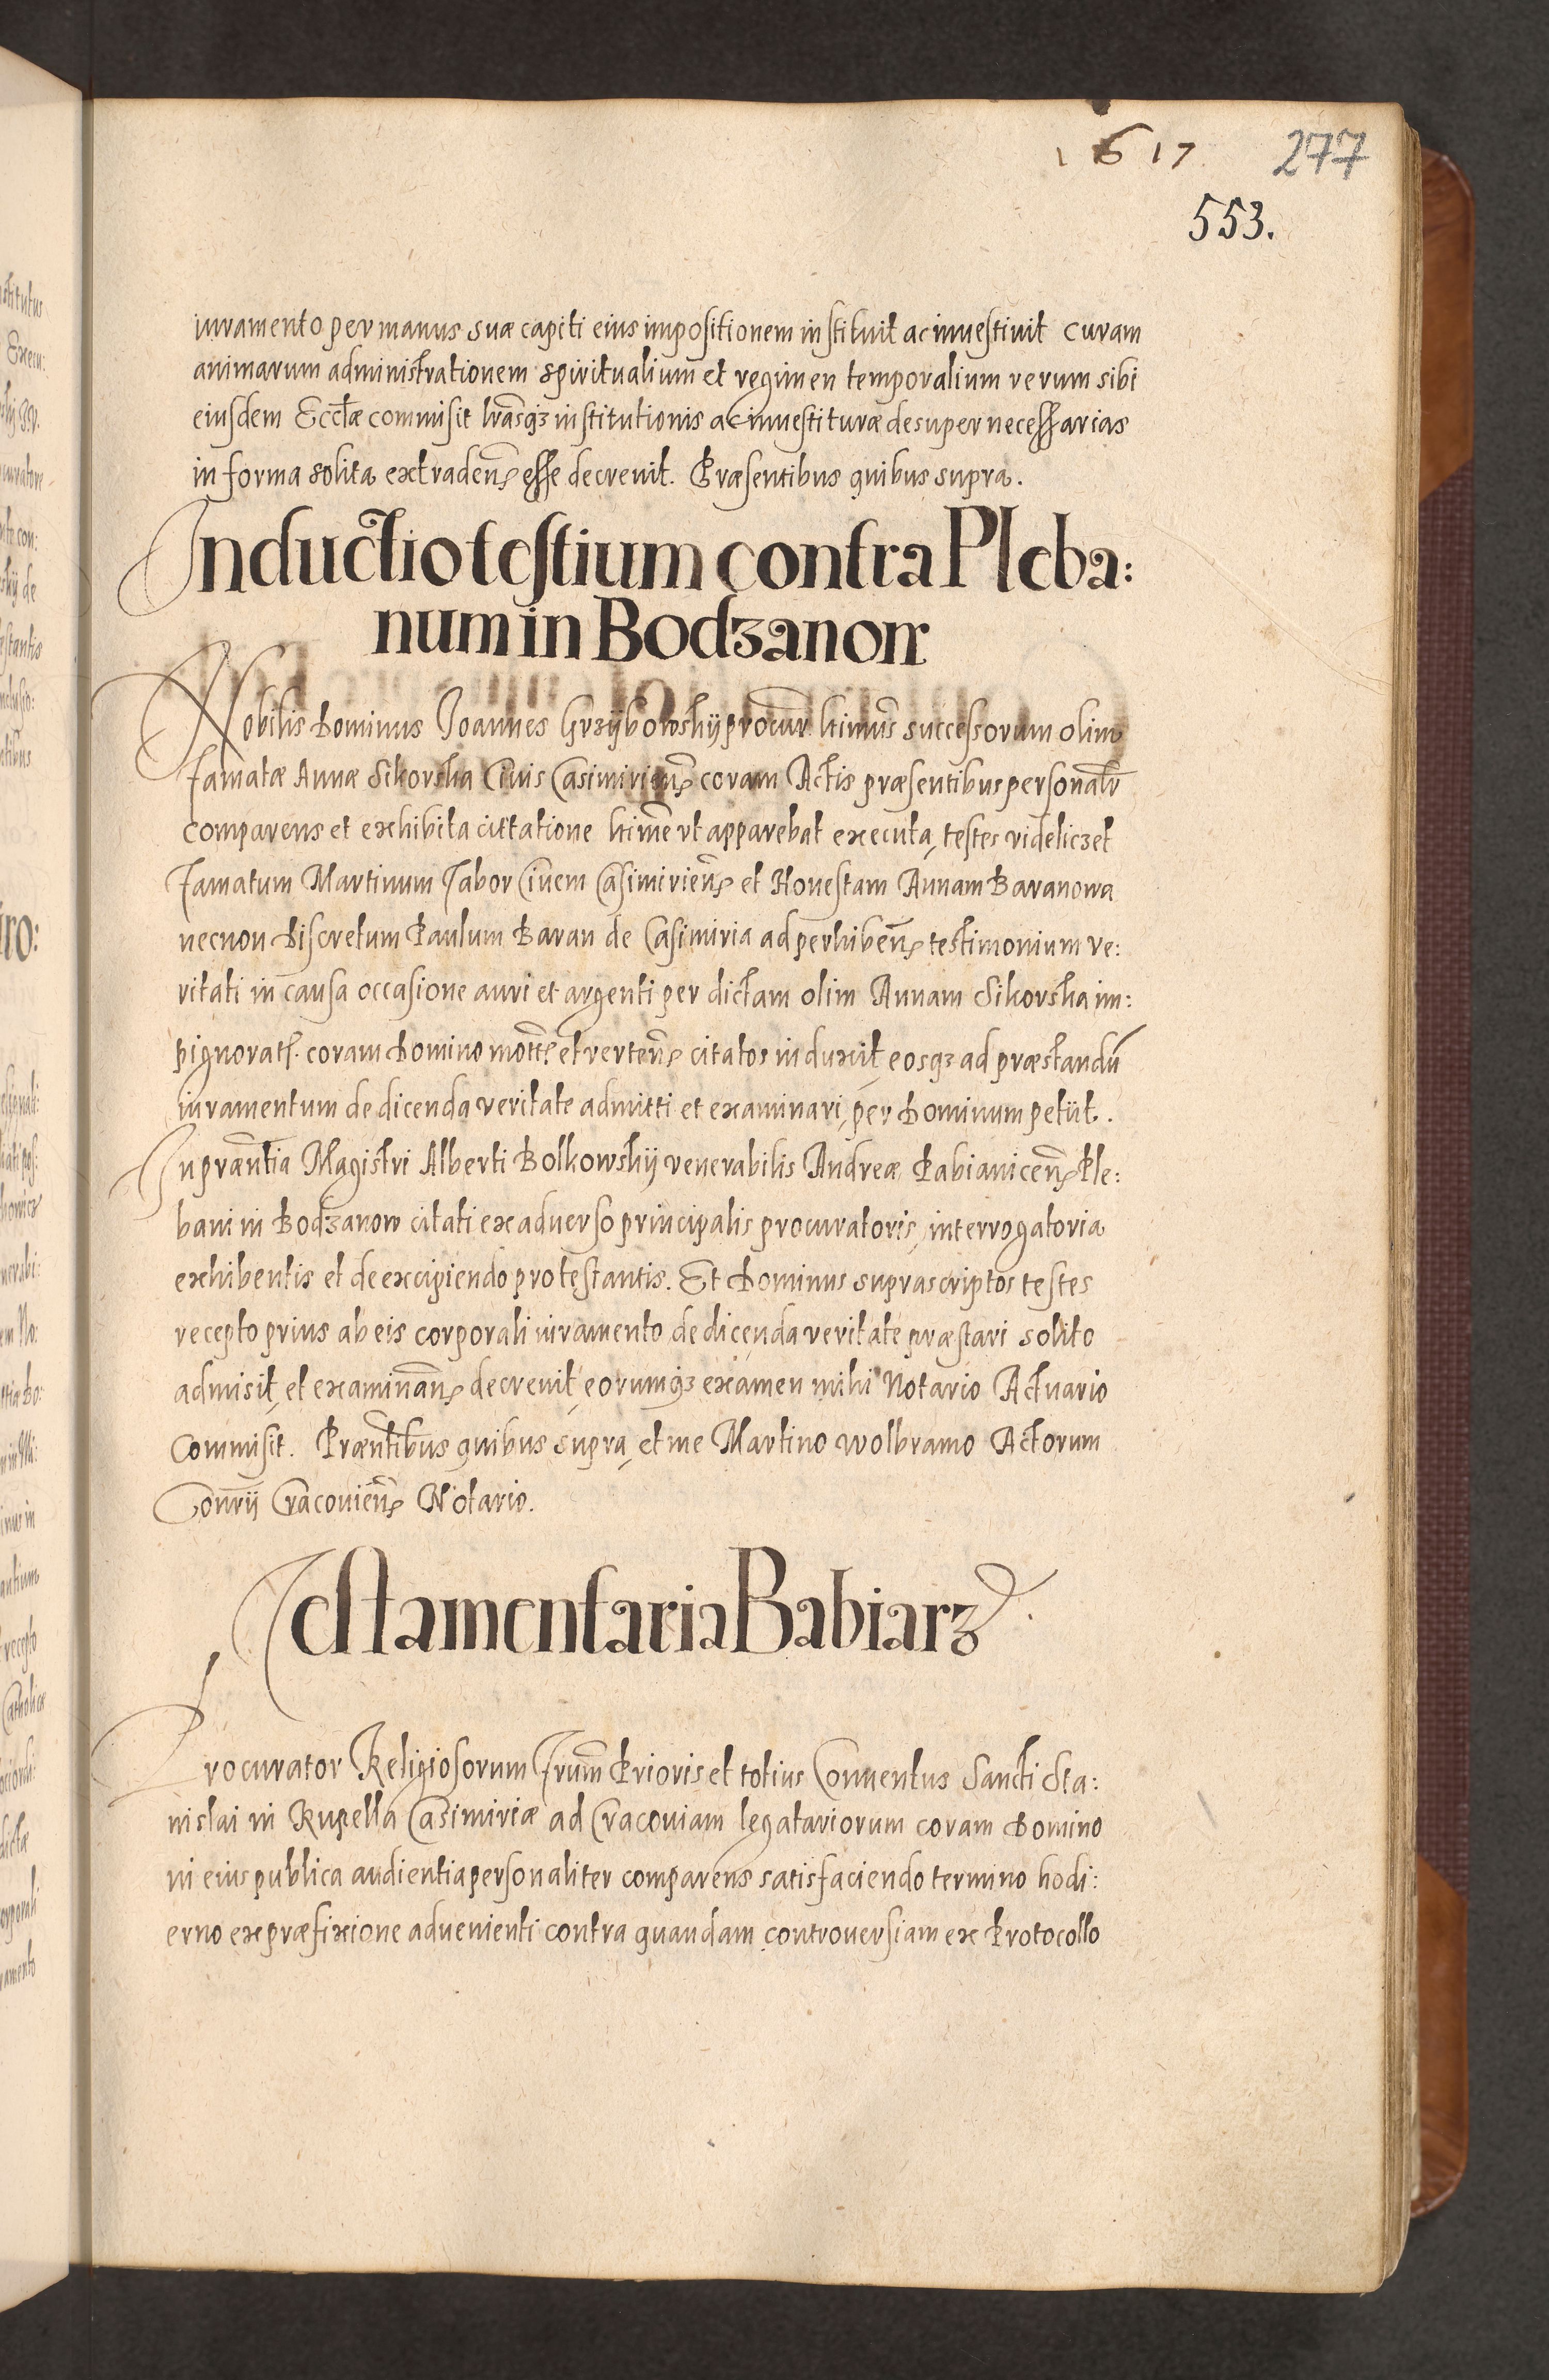 1617
277
553.
iuramento per manus suæ capiti eius impositionem instituit ac inuestiuit curam
animarum administrationem spiritualium et regimen temporalium rerum sibi
eiusdem Eccłæ commisit lr̃asqȝ institutionis ac inuestituræ desuper necessarias
in forma solita extradeñ esse decreuit. Præsentibus quibus supra.
Inductio testium contra Pleba:
num in Bodzanow
Nobilis Dominus Joannes Grzÿbowskÿ procur ltimus successorum olim
famatæ Annæ Sikorska Ciuis Casimirieñ coram Actis præsentibus personalr̃
comparens et exhibita cittatione ltime vt apparebat executa, testes videliczet
Famatum Martinum Tabor Ciuem Casimirieñ et Honestam Annam Baranowa
necnon Discretum Paulum Baran de Casimiria ad perhibeñ testimonium ve:
ritati in causa occasione auri et argenti per dictam olim Annam Sikorska im:
pignorat. coram Domino mott. et verteñ citatos induxit, eosqȝ ad præstandũ
iuramentum de dicenda veritate admitti et examinari, per Dominum petiit.
In præntia Magistri Alberti Bolkowskÿ venerabilis Andreæ Pabianiceñ Ple:
bani in Bodzanow citati ex aduerso principalis procuratoris, interrogatoria
exhibentis et de excipiendo protestantis. Et Dominus suprascriptos testes
recepto prius ab eis corporali iuramento de dicenda veritate præstari solito
admisit, et examinañ decreuit, eorumqȝ examen mihi Notario Actuario
Commisit. Præntibus quibus supra, et me Martino Wolbramo Actorum
Conrÿ Cracouieñ Notario.
Testamentaria Babiarz
Procurator Religiosorum Frum Prioris et totius Conuentus Sancti Sta:
nislai in Rupella Casimiriæ ad Cracouiam legatariorum coram Domino
in eius publica audientia personaliter comparens satisfaciendo termino hodi:
erno ex præfixione aduenienti contra quandam controuersiam ex Protocollo